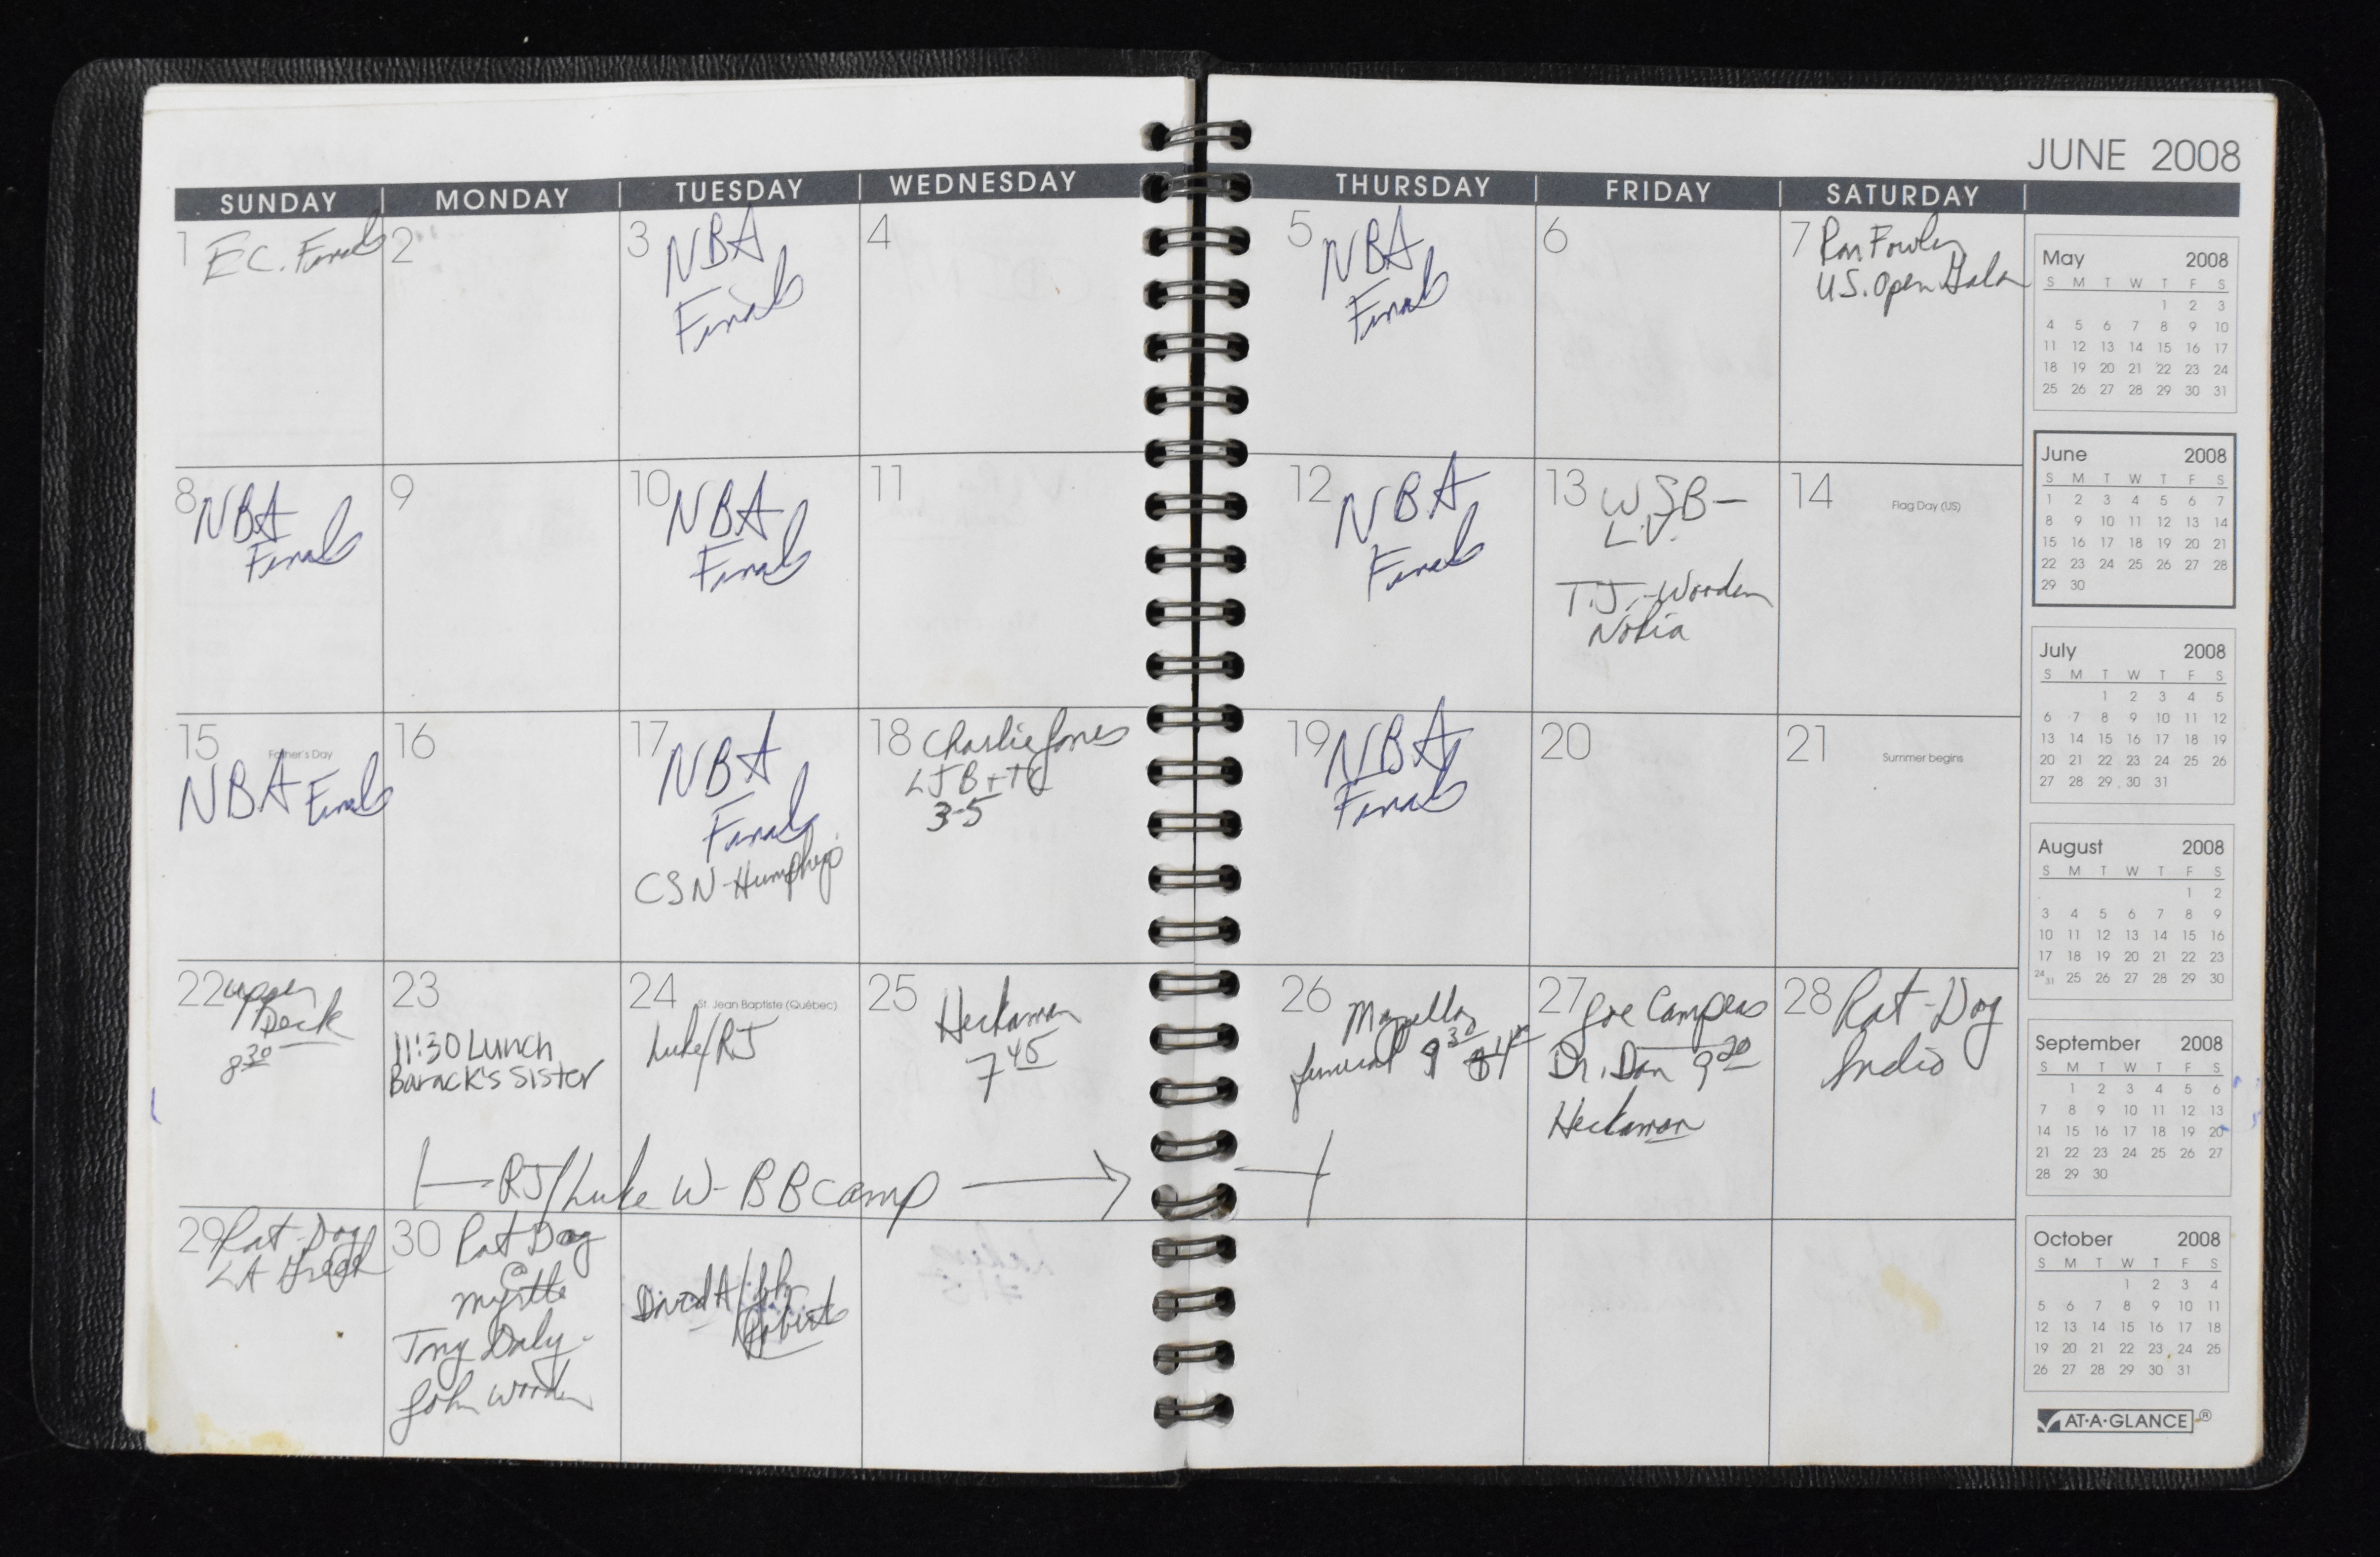 JUNE 2008
SUNDAY MONDAY TUESDAY WEDNESDAY THURSDAY FRIDAY SATURDAY
1 E.C. Finals
2
3 NBA
Finals
4
5 NBA
Finals
6
7 Ron Fowler
U.S. Open Gala
8 NBA
Finals
9
10 NBA
Finals
11
12 NBA
Finals
13 W.S.B-
L.V.
T.J.-Wooden
Nokia
14 Flag Day (US)
15 Father's Day
NBA Finals
16
17 NBA
Finals
CSN-Humphreys
18 Charlie Jones
LJB+TC
3-5
19 NBA
Finals
20
21 Summer begins
22 upper
Deck
8 30
23
11:30 Lunch
Barack's Sister
24 St. Jean Baptiste (Québec)
Luke/RJ
25 Heckaman
7 45
26
funeral 9 30
27 Joe Campeas
Dr. Dan 9 20
Heckaman
28 Rat-Dog
Indio
RJ/Luke W- BB camp
29 Rat-Dog
LA Greek
30 Rat Dog
@
myrtle
Tony Daly-
John Wooden
David A/John
Roberts
May 2008
S M T W T F S
1 2 3
4 5 6 7 8 9 10
11 12 13 14 15 16 17
18 19 20 21 22 23 24
25 26 27 28 29 30 31
June 2008
S M T W T F S
1 2 3 4 5 6 7
8 9 10 11 12 13 14
15 16 17 18 19 20 21
22 23 24 25 26 27 28
29 30
July 2008
S M T W T F S
1 2 3 4 5
6 7 8 9 10 11 12
13 14 15 16 17 18 19
20 21 22 23 24 25 26
27 28 29 30 31
August 2008
S M T W T F S
1 2
3 4 5 6 7 8 9
10 11 12 13 14 15 16
17 18 19 20 21 22 23
24 31 25 26 27 28 29 30
September 2008
S M T W T F S
1 2 3 4 5 6
7 8 9 10 11 12 13
14 15 16 17 18 19 20
21 22 23 24 25 26 27
28 29 30
October 2008
S M T W T F S
1 2 3 4
5 6 7 8 9 10 11
12 13 14 15 16 17 18
19 20 21 22 23 24 25
26 27 28 29 30 31
AT-A-GLANCE®